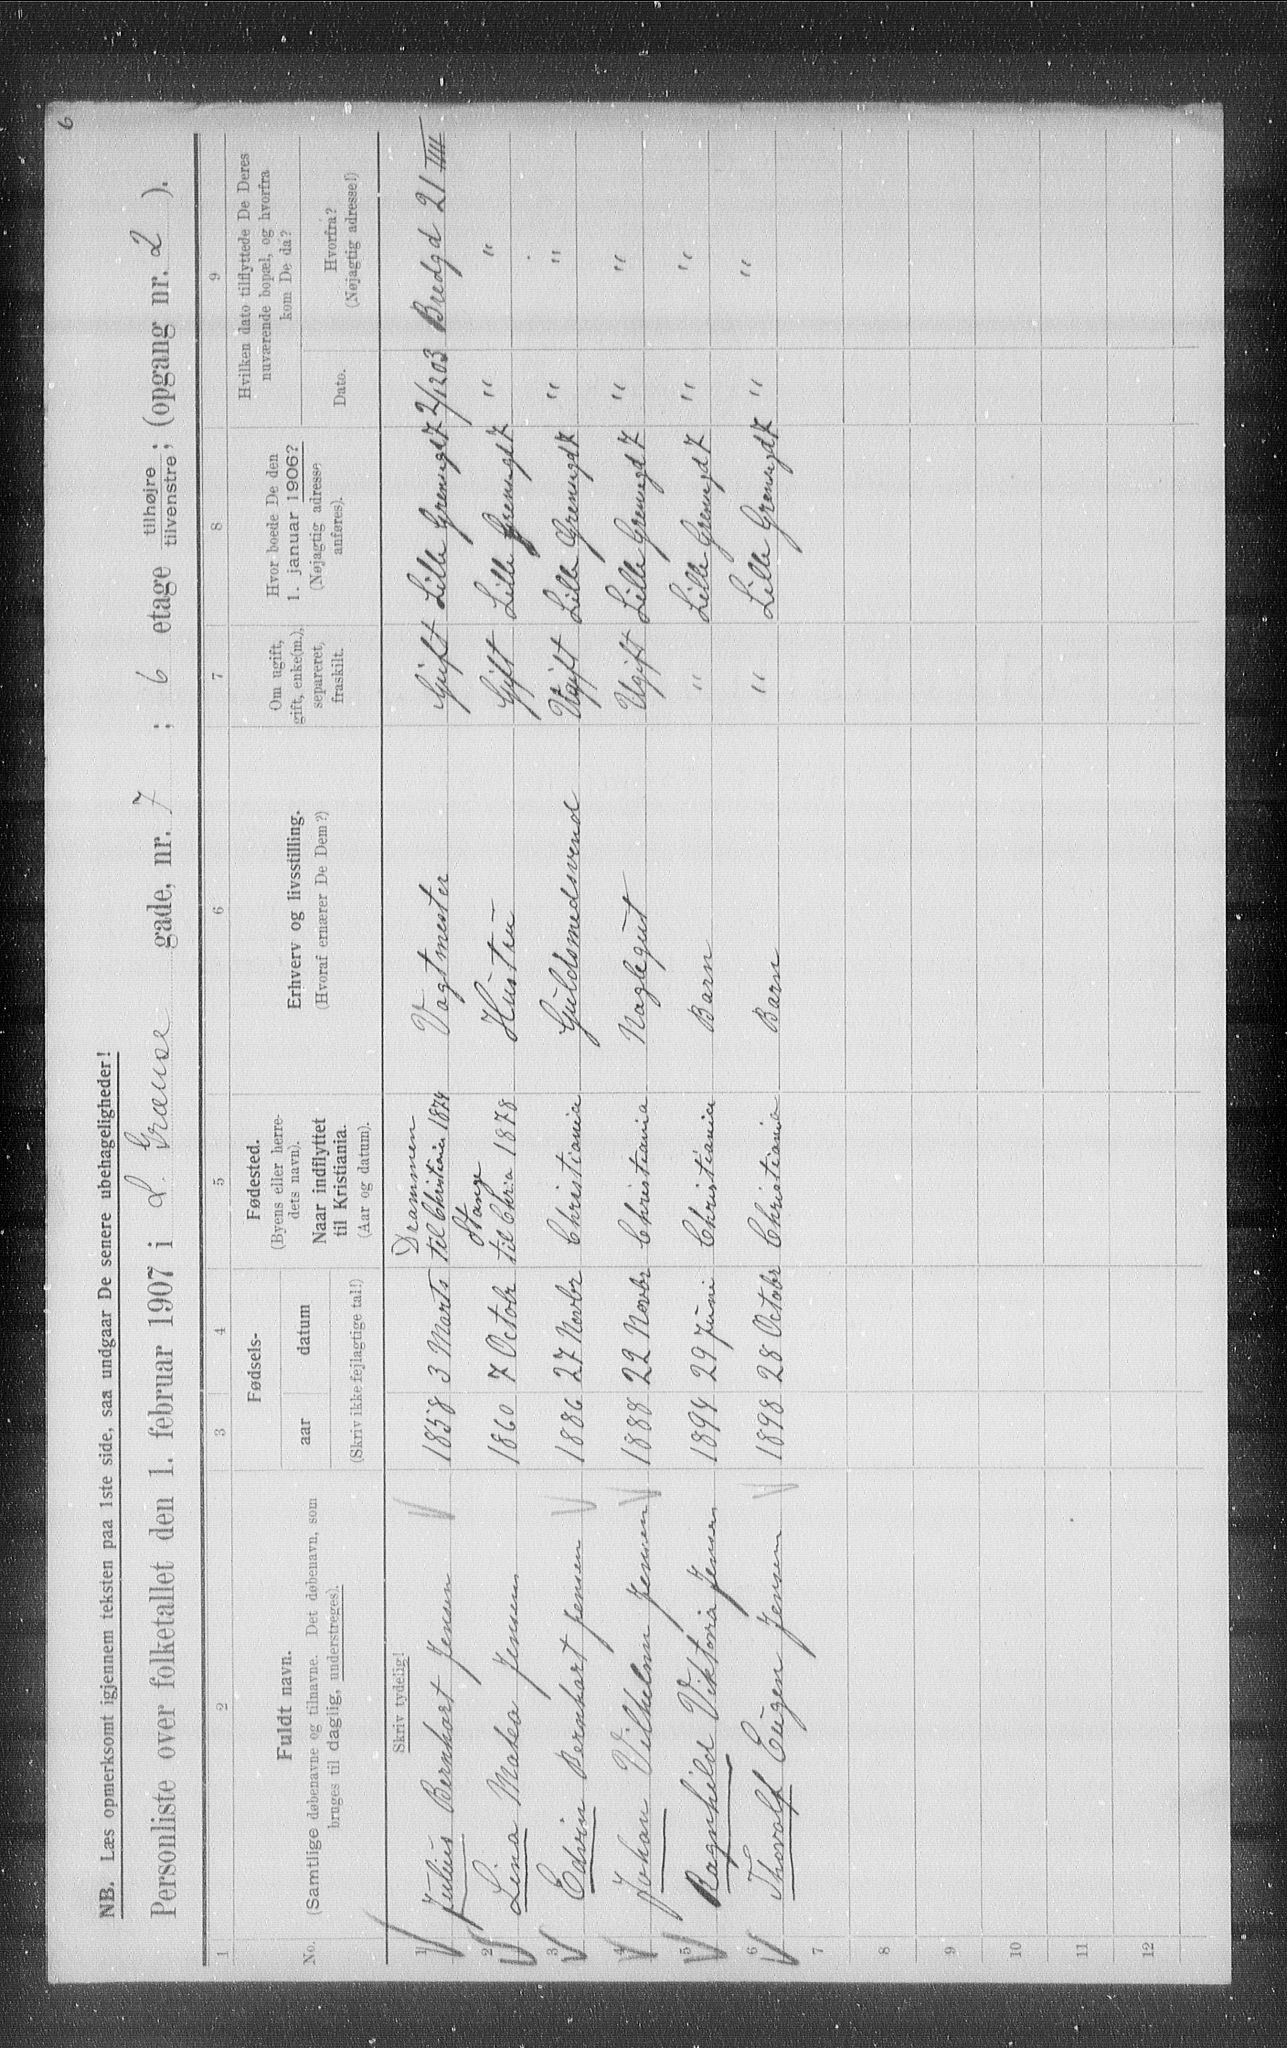 6
NB. Læs opmerksomt igjennem teksten paa 1ste side, saa undgaar De senere ubehageligheder!
Personliste over folketallet den 1. februar 1907 i L. Grænse gade, nr. 7 ; 6 etage tilhøjre / tilvenstre; (opgang nr. 2 ).
1 2 3 4 5 6 7 8 9
No.
Fuldt navn.
(Samtlige døbenavne og tilnavne. Det døbenavn, som
bruges til daglig, understreges).
Fødsels-
aar datum
(Skriv ikke fejlagtige tal!)
Fødested.
(Byens eller herre-
dets navn).
Naar indflyttet
til Kristiania.
(Aar og datum).
Erhverv og livsstilling.
(Hvoraf ernærer De Dem?)
Om ugift,
gift, enke(m.),
separeret,
fraskilt.
Hvor boede De den
1. januar 1906?
(Nøjagtig adresse
anføres).
Hvilken dato tilflyttede De Deres
nuværende bopæl, og hvorfra
kom De da?
Dato.
Hvorfra?
(Nøjagtig adresse!)
Skriv tydelig!
1 Julius Bernhart Jensen 1858 3 Marts Drammen til Christiania 1874 Vagtmester Gift Lille Grensegd 7 2/12 03 Bredgd 21 IIII
2 Lina Matea Jensen 1860 7 Octobr Stange til Chria 1878 Hustru Gift Lille Grensegd 7 " "
3 Edvin Bernhart Jensen 1886 27 Novbr Christiania Guldsmedsvend Ugift Lille Grensegd 7 " "
4 Johan Vilhelm Jensen 1888 22 Novbr Christiania Naglegut Ugift Lille Grensegd 7 " "
5 Ragnhild Viktoria Jensen 1894 29 Juni Christiania Barn " Lille Grensegd 7 " "
6 Thoralf Eugen Jensen 1898 28 Octobr Christiania Barn " Lille Grensegd 7 " "
7
8
9
10
11
12